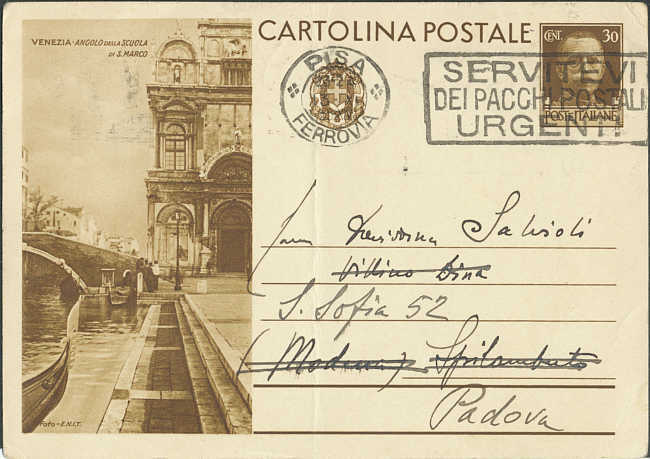 VENEZIA - ANGOLO DELLA SCUOLA
DI S. MARCO
CARTOLINA POSTALE
CENT. 30
POSTE ITALIANE
PISA
FERROVIA
SERVITEVI
DEI PACCHI POSTALI
URGENTI
Salvioli
Villino Dina
S. Sofia 52
(Modena) Spilamberto
Padova
Foto - E.N.I.T.